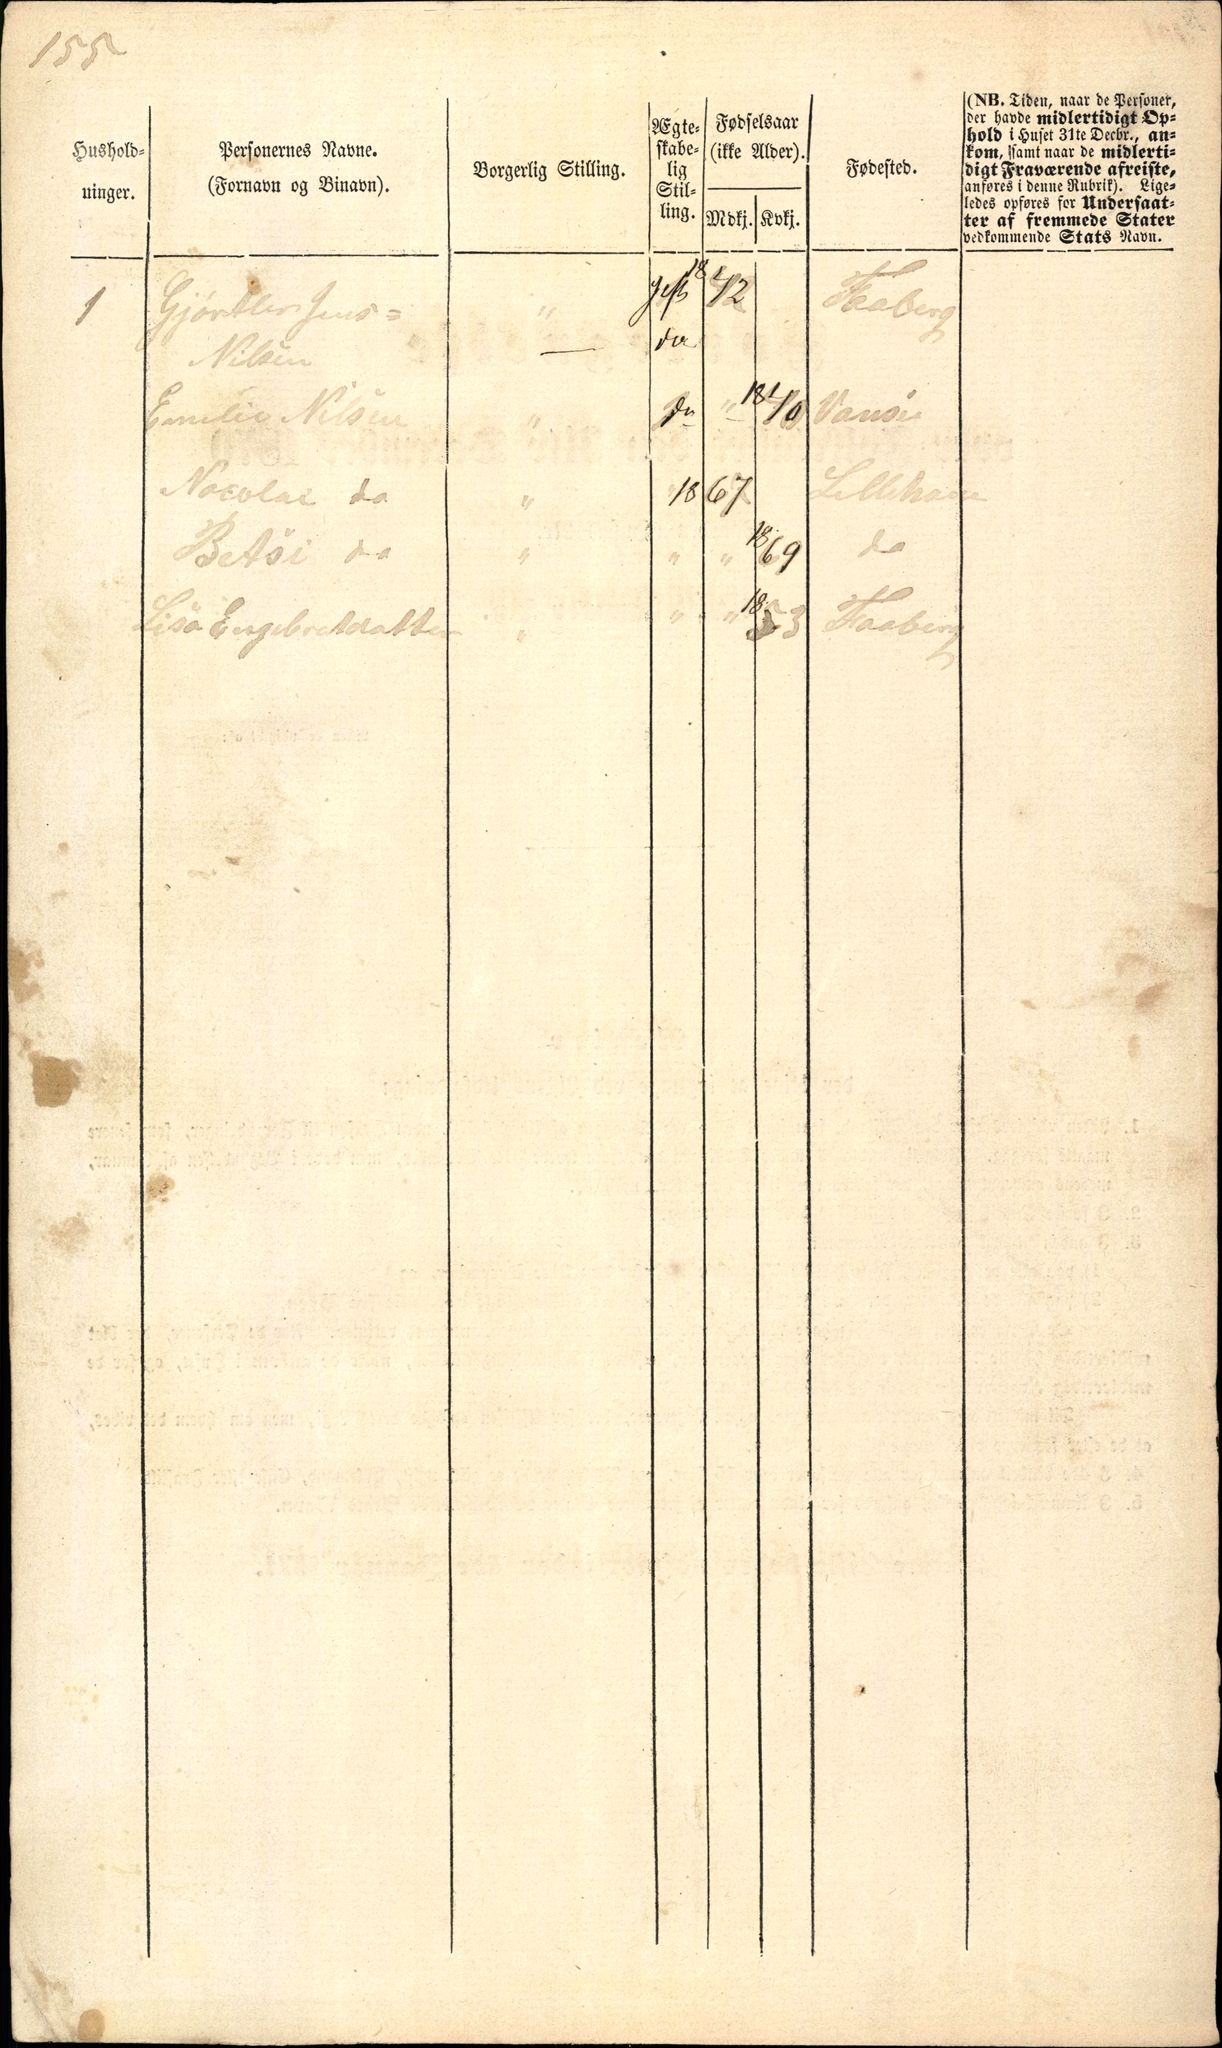 155
Hushold-
ninger.
Personernes Navne.
(Fornavn og Binavn).
Borgerlig Stilling.
Ægte-
skabe-
lig
Stil-
ling.
Fødselsaar
(ikke Alder).
Mdkj. Kvkj.
Fødested.
(NB. Tiden, naar de Personer,
der havde midlertidigt Op-
hold i Huset 31te Decbr., an-
kom, samt naar de midlerti-
digt Fraværende afreiste,
anføres i denne Rubrik). Lige-
ledes opføres for Undersaat-
ter af fremmede Stater
vedkommende Stats Navn.
1 Gjørtler Jens= " gift 1842 Faaberg
Nilsen — do
Emilie Nilsen " do " 1840
Nocolai do " " 1867 Lilleham
Betsi do " " " 1869 do
Lisa Engebretdatter " " " 1853 Faaberg